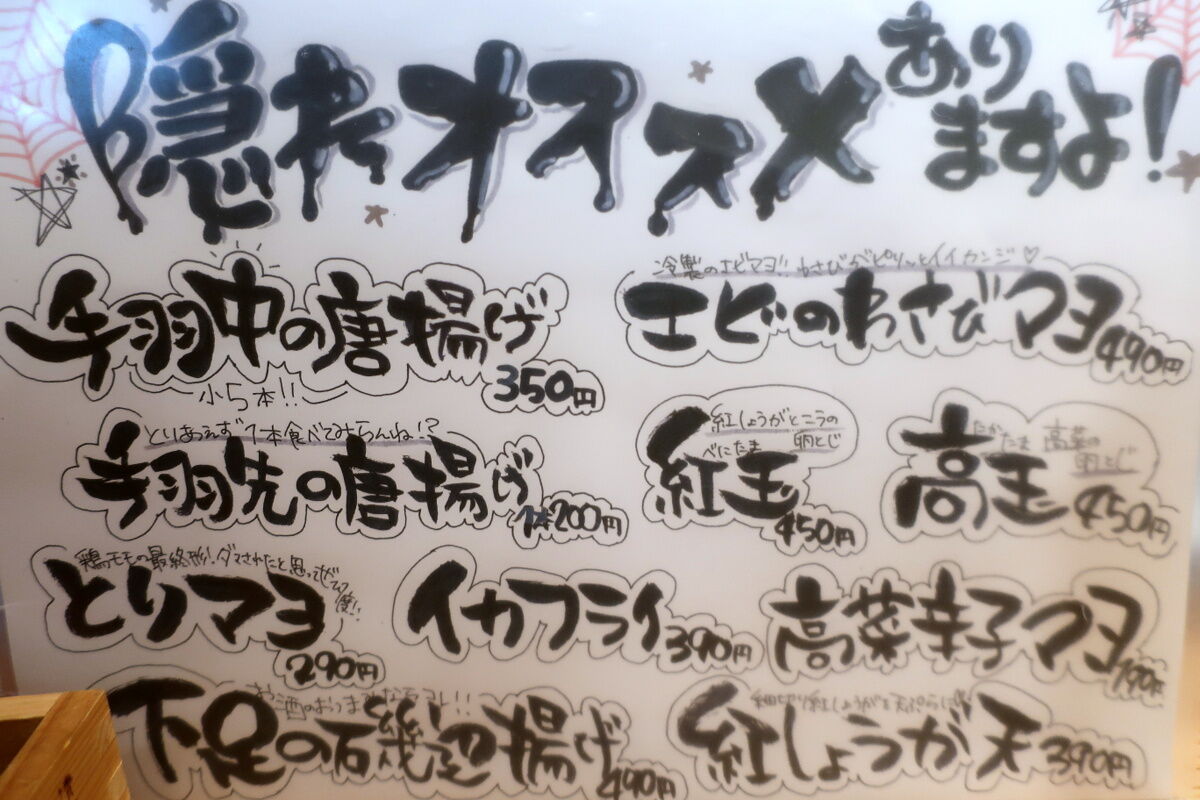 隠れオススメありますよ!
手羽中の唐揚げ
350円
小5本!!
冷製のエビマヨ!! わさびがピリッとイイカンジ♡
エビのわさびマヨ
490円
とりあえず1本食べてみらんね!?
手羽先の唐揚げ
1本200円
紅しょうがとニラの
卵とじ
べにたま
紅玉
450円
たかたま
高菜の
卵とじ
高玉
450円
鶏モモの最終形!ダマされたと思ってぜひ
とりマヨ
290円
イカフライ
390円
高菜辛子マヨ
190円
お酒のおつまみならコレ!!
下足の石幾辺揚げ
490円
細切り紅しょうがを天ぷらに
紅しょうが天
390円